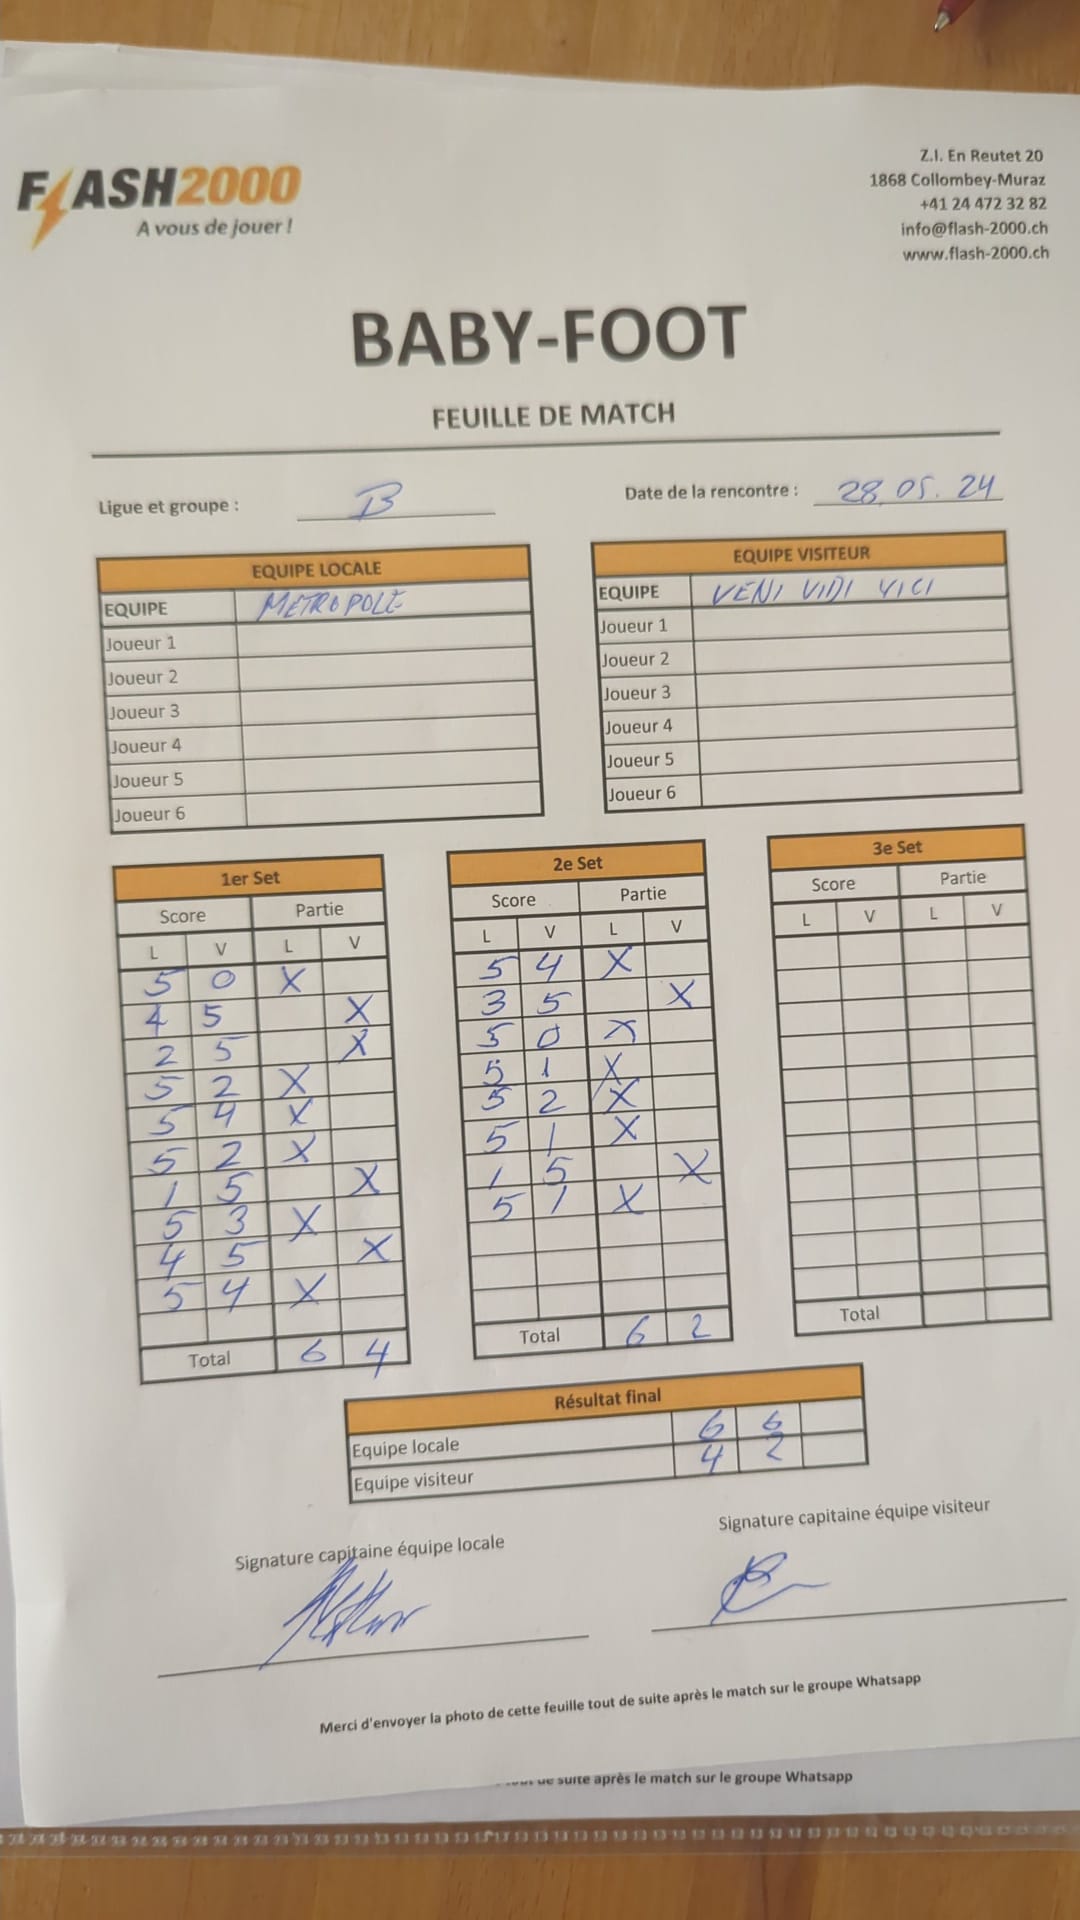 FLASH2000
A vous de jouer !
Z.I. En Reutet 20
1868 Collombey-Muraz
+41 24 472 32 82
info@flash-2000.ch
www.flash-2000.ch
BABY-FOOT
FEUILLE DE MATCH
Ligue et groupe : B
Date de la rencontre : 28.05.24
EQUIPE LOCALE
EQUIPE METROPOLE
Joueur 1
Joueur 2
Joueur 3
Joueur 4
Joueur 5
Joueur 6
EQUIPE VISITEUR
EQUIPE VENI VIDI VICI
Joueur 1
Joueur 2
Joueur 3
Joueur 4
Joueur 5
Joueur 6
1er Set
Score Partie
L V L V
5 0 X
4 5 X
2 5 X
5 2 X
5 4 X
5 2 X
1 5 X
5 3 X
4 5 X
5 4 X
Total 6 4
2e Set
Score Partie
L V L V
5 4 X
3 5 X
5 0 X
5 1 X
5 2 X
5 1 X
1 5 X
5 1 X
Total 6 2
3e Set
Score Partie
L V L V
Total
Résultat final
Equipe locale 6 6
Equipe visiteur 4 2
Signature capitaine équipe locale
Signature capitaine équipe visiteur
Merci d'envoyer la photo de cette feuille tout de suite après le match sur le groupe Whatsapp
de suite après le match sur le groupe Whatsapp